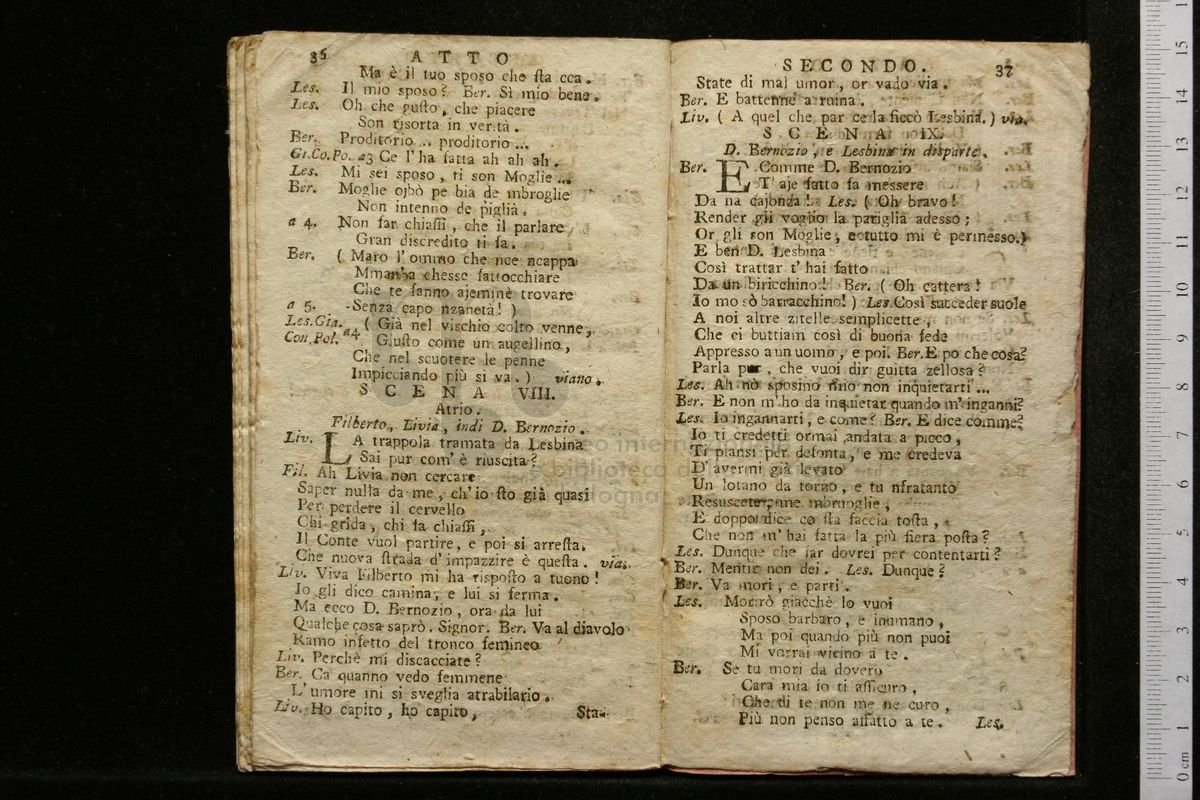 36 ATTO
Ma è il tuo sposo che ſta cca.
Les. Il mio sposo? Ber. Sì mio bene.
Les. Oh che guſto, che piacere
Son risorta in verità.
Ber. Proditorio... proditorio...
Gi.Co.Po. a3 Ce l'ha fatta ah ah ah.
Les. Mi sei sposo, ti son Moglie...
Ber. Moglie oibò pe bia de mbroglie
Non intenno de piglià.
a 4. Non far chiaſſi, che il parlare
Gran discredito ti fa.
Ber. ( Maro l'ommo che nce ncappa
Mman'ha chesse fattocchiare
Che te fanno ajemmè trovare
a 5. Senza capo nzanetà! )
Les. Gia. ( Già nel vischio colto venne,
Con. Pol. a4 Giuſto come un augellino,
Che nel scuotere le penne
Impicciando più si va. ) viano.
SCENA VIII.
Atrio.
Filberto, Livia, indi D. Bernozio.
Liv. LA trappola tramata da Lesbina
Sai pur com'è riuscita?
Fil. Ah Livia non cercare
Saper nulla da me, ch'io ſto già quasi
Per perdere il cervello
Chi grida, chi fa chiaſſi,
Il Conte vuol partire, e poi si arreſta.
Che nuova ſtrada d'impazzire è queſta. via.
Liv. Viva Filberto mi ha riſpoſto a tuono!
Io gli dico camina, e lui si ferma.
Ma ecco D. Bernozio, ora da lui
Qualche cosa saprò. Signor. Ber. Va al diavolo
Ramo infetto del tronco femineo
Liv. Perchè mi discacciate?
Ber. Ca quanno vedo femmene
L'umore mi si sveglia atrabilario.
Liv. Ho capito, ho capito,
Sta-
SECONDO. 37
State di mal umor, or vado via.
Ber. E battenne a ruina.
Liv. ( A quel che par ce la ficcò Lesbina. ) via.
SCENA IX.
D. Bernozio, e Lesbina in disparte.
Ber. E Comme D. Bernozio
T'aje fatto fa messere
Da na cajonza! Les. ( Oh bravo!
Render gli voglio la pariglia adesso;
Or gli son Moglie, e tutto mi è permesso.)
E ben D. Lesbina
Così trattar t'hai fatto
Da un biricchino! Ber. ( Oh cattera!
Io mo sò barracchino! ) Les. Così succeder suole
A noi altre zitelle semplicette,
Che ci buttiam così di buona fede
Appresso a un uomo, e poi. Ber. E po che cosa?
Parla pur, che vuoi dir guitta zellosa?
Les. Ah nò sposino mio non inquietarti...
Ber. E non m'ho da inquietar quando m'inganni?
Les. Io ingannarti, e come? Ber. E dice comme?
Io ti credetti ormai andata a picco,
Ti piansi per defonta, e me credeva
D'avermi già levato
Un lotano da torno, e tu nfratanto
Resuscete, nne mbruoghe,
E doppo dice co ſta faccia toſta,
Che non m'hai fatta la più fiera poſta?
Les. Dunque che far dovrei per contentarti?
Ber. Mentir non dei. Les. Dunque?
Ber. Va mori, e parti.
Les. Morirò giacchè lo vuoi
Sposo barbaro, e inumano,
Ma poi quando più non puoi
Mi vorrai vicino a te.
Ber. Se tu mori da dovero
Cara mia io ti aſſicuro,
Che di te non me ne curo,
Più non penso affatto a te. Les.